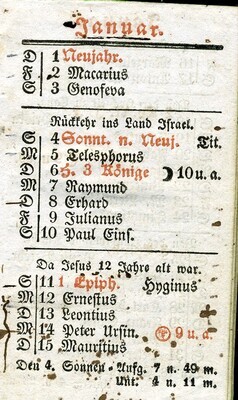 Januar.
D 1 Neujahr.
F 2 Macarius
S 3 Genofeva
Rückkehr ins Land Israel.
S 4 Sonnt. n. Neuj. Tit.
M 5 Telesphorus
D 6 H. 3 Könige ☽ 10 u. a.
M 7 Raymund
D 8 Erhard
F 9 Julianus
S 10 Paul Eins.
Da Jesus 12 Jahre alt war.
S 11 1 Epiph. Hyginus
M 12 Ernestus
D 13 Leontius
M 14 Peter Ursin. 9 u. a.
D 15 Mauritius
Den 4. Sonnen-Aufg. 7 n. 49 m.
Unt. 4 n. 11 m.